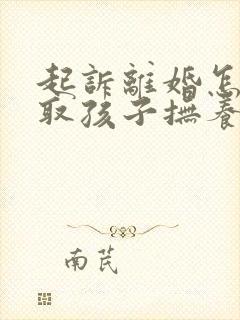 起訴離婚怎
取孩子撫養
南芪